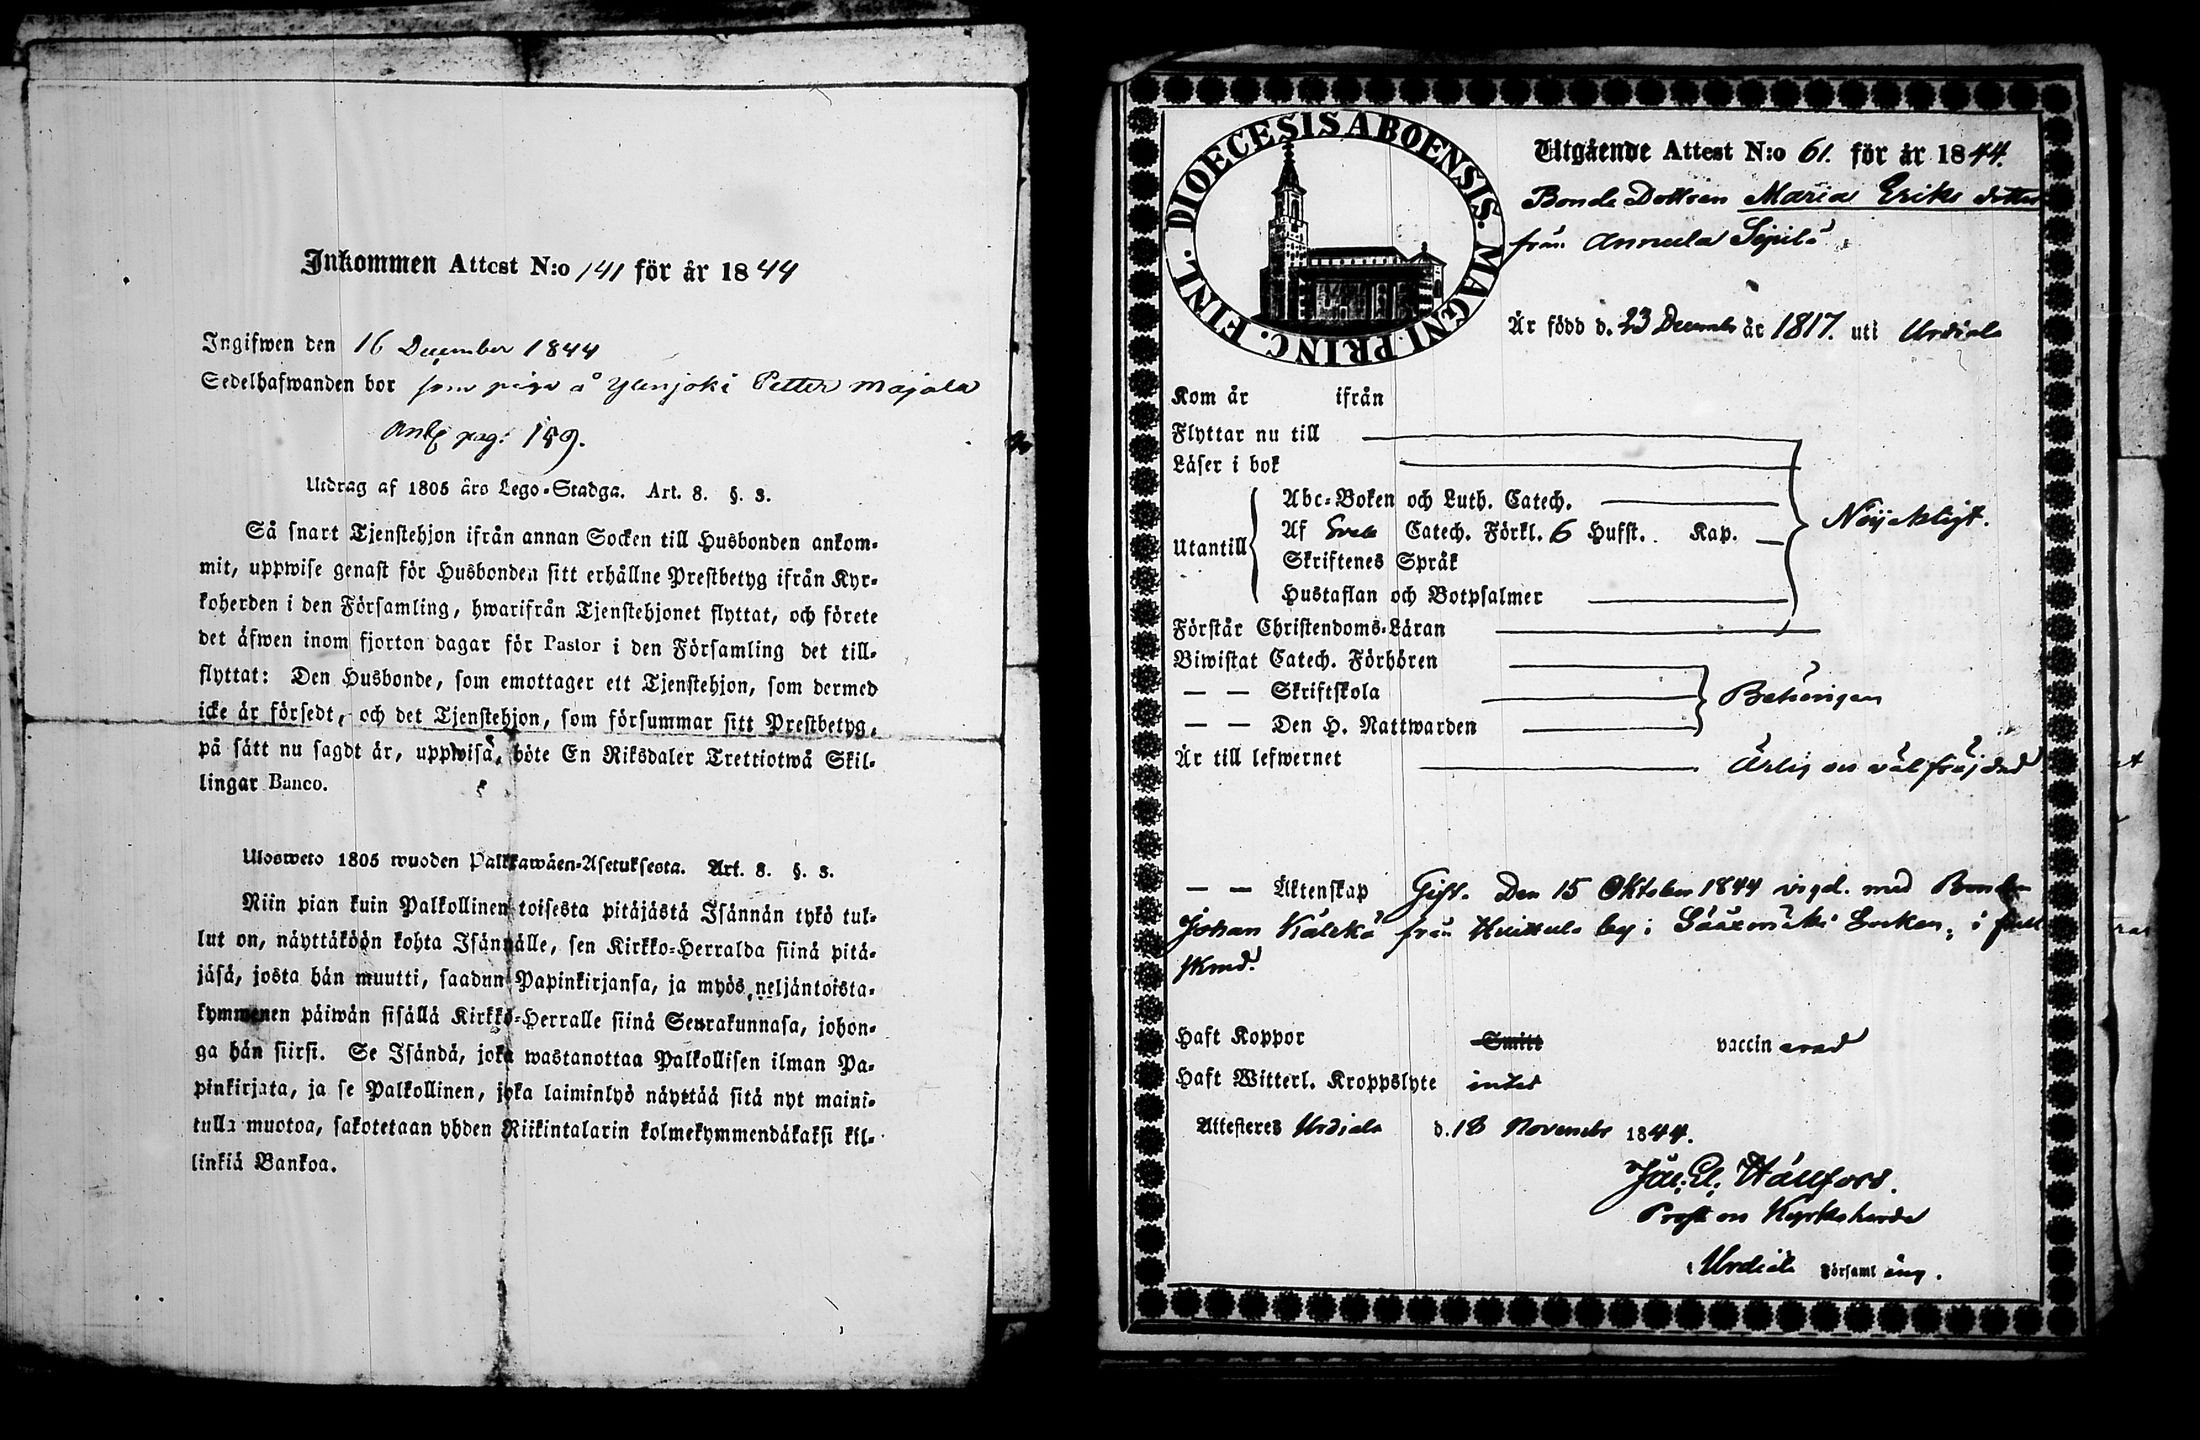 Inkommen Attest N:o 141 för år 1844
Ingifwen den 16 December 1844
Sedelhafwanden bor som piga å Ylenjoki Petter Majala
pag: 159.
Utdrag af 1805 års Lego-Stadga. Art. 8. §. 3.
Så snart Tjenstehjon ifrån annan Socken till Husbonden ankom-
mit, uppwise genast för Husbonden sitt erhållne Prestbetyg ifrån Kyr-
koherden i den Församling, hwarifrån Tjenstehjonet flyttat, och förete
det äfwen inom fjorton dagar för Pastor i den Församling det till-
flyttat: Den Husbonde, som emottager ett Tjenstehjon, som dermed
icke är försedt, och det Tjenstehjon, som försummar sitt Prestbetyg,
på sätt nu sagdt är, uppwisa, böte En Riksdaler Trettiotwå Skil-
lingar Banco.
Ulosweto 1805 wuoden Palkkawäen-Asetuksesta. Art. 8. §. 3.
Niin pian kuin Palkollinen toisesta pitäjästä Isännän tykö tul-
lut on, näyttäköön kohta Isännälle, sen Kirkko-Herralda siinä pitä-
jäsä, josta hän muutti, saadun Papinkirjansa, ja myös neljäntoista-
kymmenen päiwän sisällä Kirkko-Herralle siinä Seurakunnasa, johon-
ga hän siirsi. Se Isändä, joka wastanottaa Palkollisen ilman Pa-
pinkirjata, ja se Palkollinen, joka laiminlyö näyttää sitä nyt maini-
tulla muotoa, sakotetaan yhden Riikintalarin kolmekymmendäkaksi kil-
linkiä Bankoa.
DIOECESIS ABOENSIS. MAGNI PRINC. FINL.
Utgående Attest N:o 61. för år 1844.
Bonde Dottren Maria Eriks dotter
från Annula Sipilä
Är född d. 23 December år 1817. uti Urdiala
Kom år ifrån
Flyttar nu till
Läser i bok
Abc-Boken och Luth. Catech.
Af Svebe Catech. Förkl. 6 Hufst. Kap.
Utantill
Skriftenes Språk
Hustaflan och Botpsalmer
Nöjaktigt.
Förstår Christendoms-Läran
Biwistat Catech. Förhören
— — Skriftskola
— — Den H. Nattwarden
Behörigen
Är till lefwernet Ärlig och välfräjdad
— — Äktenskap Gift. Den 15 Oktober 1844 vigd. med Bonden
Johan Kälckä från Huittula by i Sääxmäki Socken, i
Haft Koppor Smitt vaccinerad
Haft Witterl. Kroppslyte intet
Attesteres Urdiala d. 18 November 1844.
Hällfors.
Prost och Kyrkoherde
i Urdiala Församling.